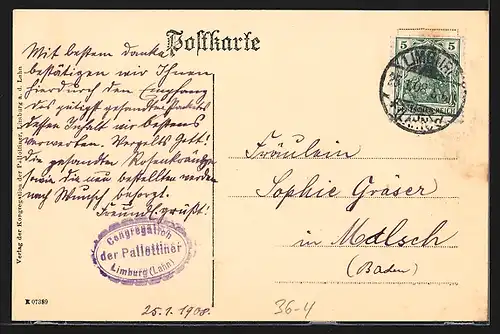 Postkarte
Mit bestem Danke
bestätigen wir Ihnen
hierdurch den Empfang
des gütigst gesandten
dessen Inhalt wir bestens
verwerten. Vergelts Gott!
Die gesandten Rosenkränze
sowie die neu bestellten werden
nach Wunsch besorgt.
Freundl. grüßt!
Congregation
der Pallottiner
Limburg (Lahn)
25.1.1908.
Verlag der Kongregation der Pallottiner, Limburg a. d. Lahn
R 07389
5 5
LIMBURG
Fräulein
Sophie Gräser
in Malsch
(Baden)
36-4